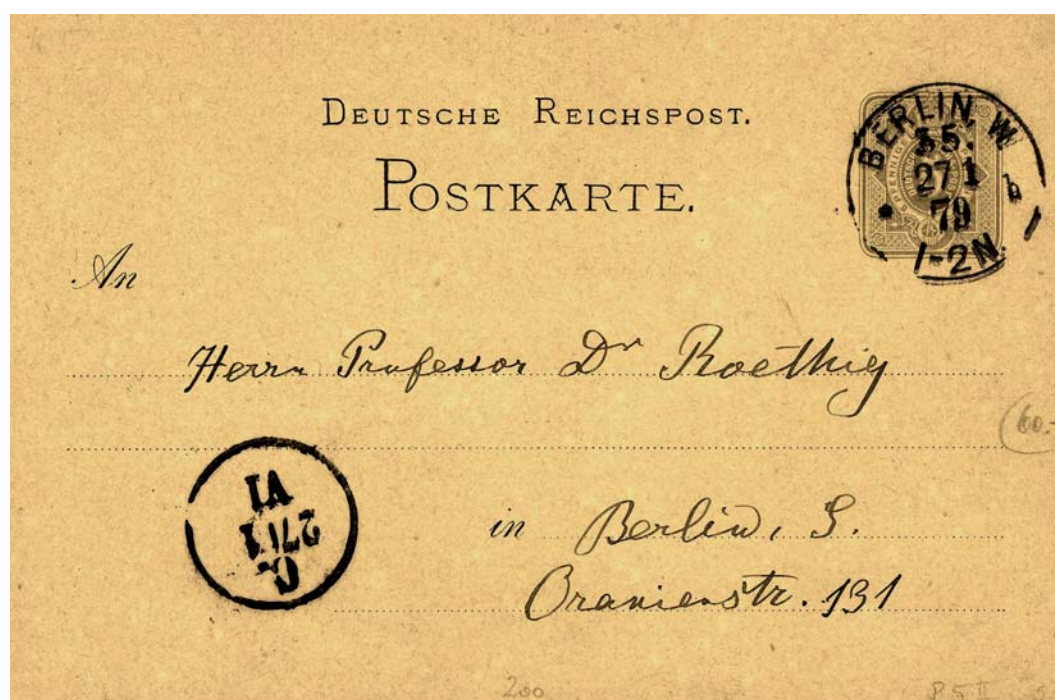 DEUTSCHE REICHSPOST.
POSTKARTE.
BERLIN, W.
35.
27 1
79
1-2N.
An
Herrn Professor Dr Roethig
60.-
VI
27 1
in Berlin, S.
Oranienstr. 131
200